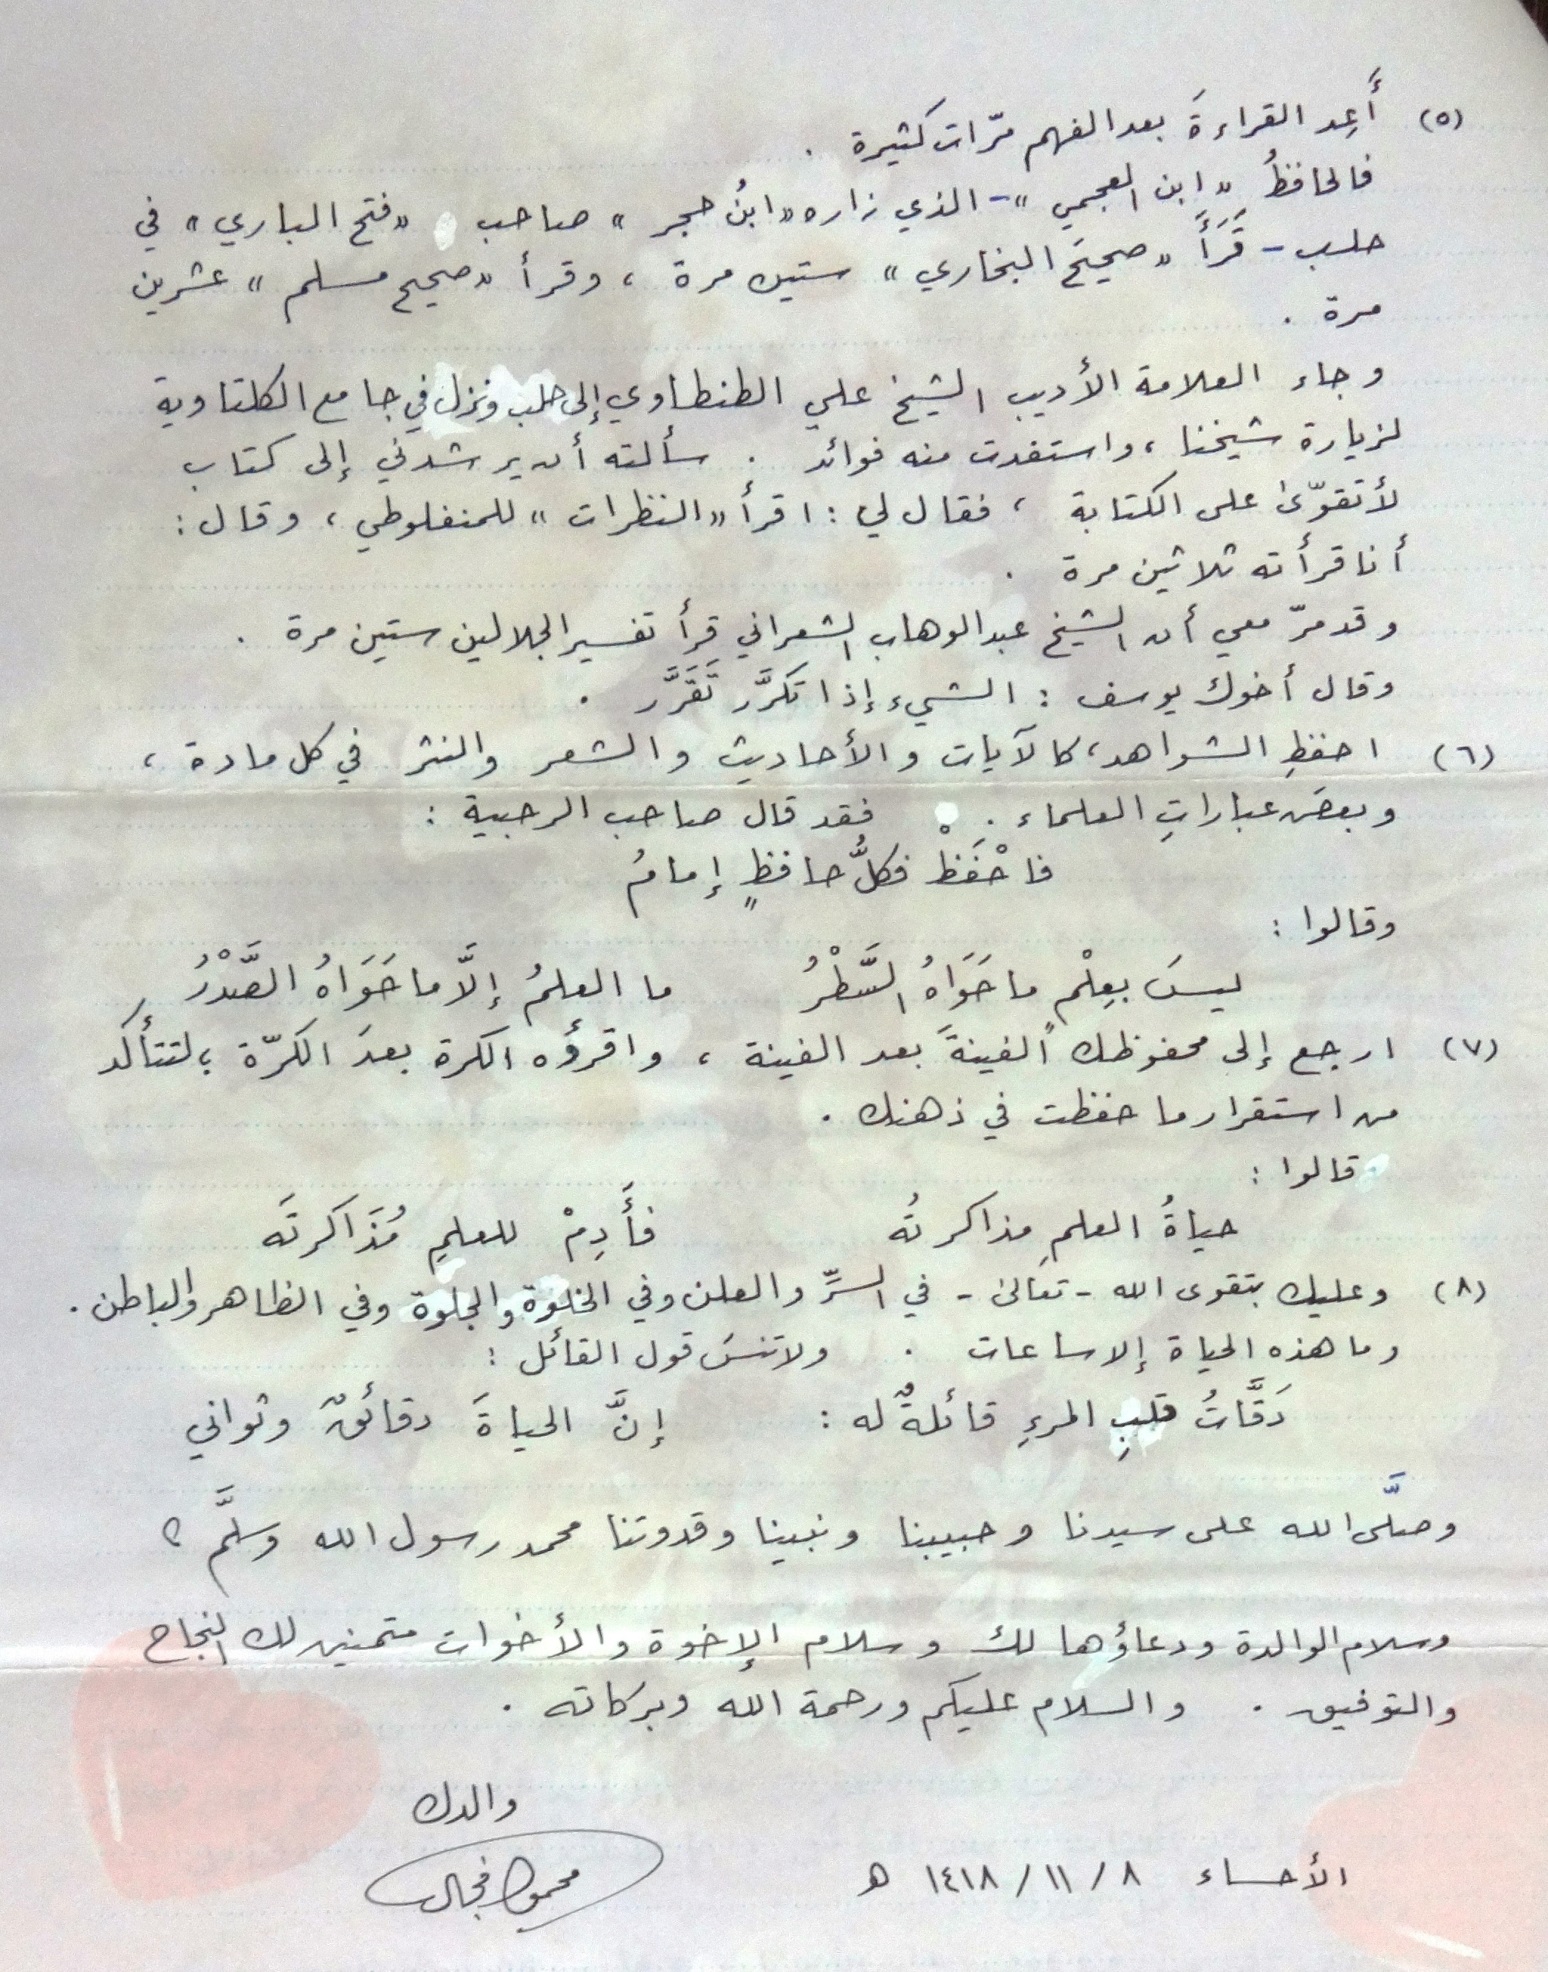 (٥) أَعِد القراءةَ بعد الفهم مرّات كثيرة .
فالحافظُ «ابن العجمي» - الذي زاره «ابنُ حجر» صاحب «فتح الباري» في
حلب - قَرَأَ «صحيحَ البخاري» ستين مرة ، وقرأ «صحيح مسلم» عشرين
مرة .
وجاء العلامة الأديب الشيخ علي الطنطاوي إلى حلب ونزل في جامع الكلتاوية
لزيارة شيخنا ، واستفدت منه فوائد . سألته أن يرشدني إلى كتاب
لأتقوّى على الكتابة ، فقال لي : اقرأ «النظرات» للمنفلوطي ، وقال :
أنا قرأته ثلاثين مرة .
وقد مرّ معي أن الشيخ عبدالوهاب الشعراني قرأ تفسير الجلالين ستين مرة .
وقال أخوك يوسف : الشيء إذا تَكَرَّر تَقَرَّر .
(٦) احفظِ الشواهد ، كالآيات والأحاديث والشعر والنثر في كل مادة ،
وبعضَ عباراتِ العلماء . فقد قال صاحب الرحبية :
فاحْفَظْ فكلُّ حافظٍ إمامُ
وقالوا :
ليسَ بِعِلْم ما حَوَاهُ السَّطْرُ ما العلمُ إلَّا ما حَوَاهُ الصَّدْرُ
(٧) ارجع إلى محفوظك الفينةَ بعد الفينة ، واقرؤه الكرة بعدَ الكرّة ، لتتأكَد
من استقرار ما حفظت في ذهنك .
قالوا :
حياةُ العلمِ مذاكرتُه فَأَدِمْ للعلمِ مُذَاكرتَه
(٨) وعليك بتقوى الله - تعالى - في السرِّ والعلن وفي الخلوة والجلوة وفي الظاهر والباطن .
وما هذه الحياة إلا ساعات . ولا تنسَ قول القائل :
دَقَّاتُ قلبِ المرءِ قائلةٌ له : إنَّ الحياةَ دقائقٌ وثواني
وصلَّى الله على سيدنا وحبيبنا ونبينا وقدوتنا محمد رسول الله وسلَّم
وسلام الوالدة ودعاؤها لك وسلام الإخوة والأخوات متمنين لك النجاح
والتوفيق . والسلام عليكم ورحمة الله وبركاته .
والدك
الأحساء ٨ / ١١ / ١٤١٨ هـ
محمود فجال